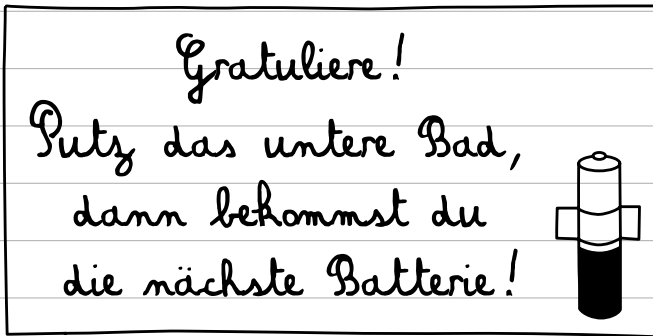 Gratuliere!
Putz das untere Bad,
dann bekommst du
die nächste Batterie!